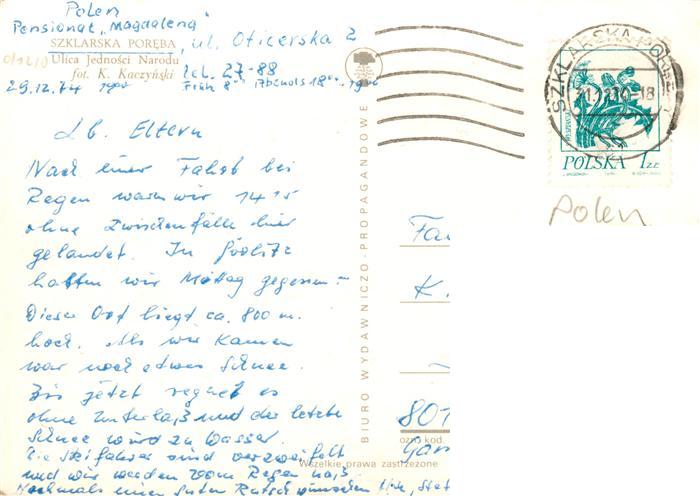 Polen
Pensionat "Magdalena"
SZKLARSKA PORĘBA, ul. Oficerska 2
Ulica Jedności Narodu
fot. K. Kaczyński tel. 27-88
29.12.74 19⁰⁰ Früh 8⁰⁰ Abends 18⁰⁰
Lb. Eltern
Nach einer Fahrt bei
Regen waren wir 14 15
ohne Zwischenfälle hier
gelandet. In Görlitz
hatten wir Mittag gegessen –
Dieser Ort liegt ca. 800 m.
hoch. Als wir kamen
war noch etwas Schnee.
Bis jetzt regnet es
ohne Unterlaß und der letzte
Schnee wird zu Wasser.
Die Skifahrer sind verzweifelt
und wir werden vom Regen naß.
Nochmals einen guten Rutsch wünschen
BIURO WYDAWNICZO-PROPAGANDOWE
SZKLARSKA PORĘBA
-18
POLSKA 1 ZŁ
Polen
Fa
K.
801
ozn. kod.
Wszelkie prawa zastrzeżone